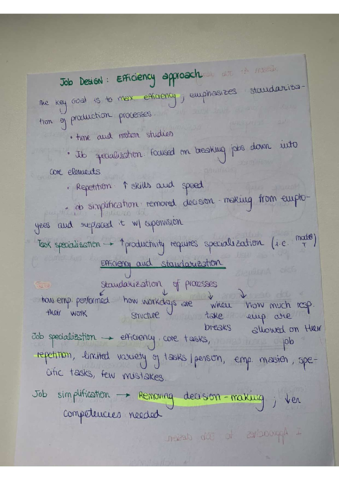 Job Design: Efficiency approach
the key goal is to max efficiency, emphasizes standardiza-
tion of production processes
• time and motion studies
• Job specialisation focused on breaking jobs down into
core elements
• Repetition ↑ skills and speed
• Job simplification - removed decision-making from emplo-
yees and replaced it w/ supervision
Task specialisation → ↑ productivity requires specialization (i.e.
Efficiency and standardization
Standardization of processes
how emp. performed their work
how workdays are structure
when take breaks
how much resp. emp are allowed on their job
Job specialization → efficiency, core tasks,
repetition, limited variety of tasks/person, emp. master, spe-
cific tasks, few mistakes
Job simplification → Removing decision-making, ↓er
competencies needed